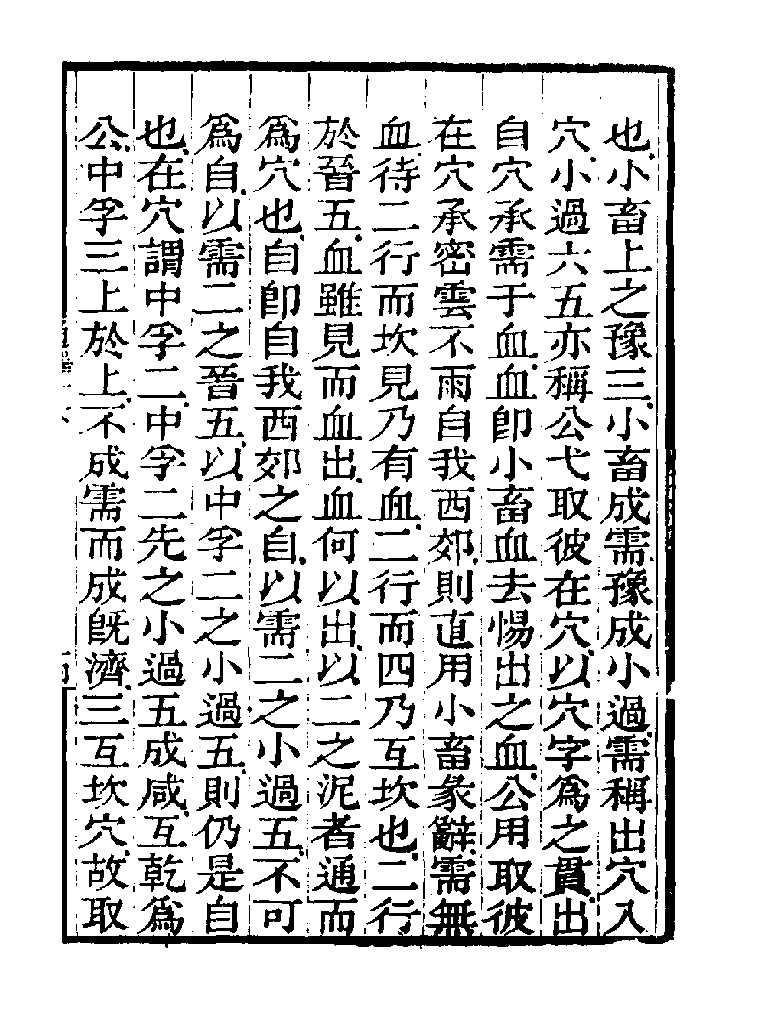 也小畜上之豫三小畜成需豫成小過需稱出穴入
穴小過六五亦稱公弋取彼在穴以穴字爲之貫出
自穴承需于血血卽小畜血去惕出之血公用取彼
在穴承密雲不雨自我西郊則直用小畜彖辭需無
血待二行而坎見乃有血二行而四乃互坎也二行
於晉五血雖見而血出血何以出以二之泥者通而
爲穴也自卽自我西郊之自以需二之小過五不可
爲自以需二之晉五以中孚二之小過五則仍是自
也在穴謂中孚二中孚二先之小過五成咸互乾爲
公中孚三上於上不成需而成旣濟三互坎穴故取